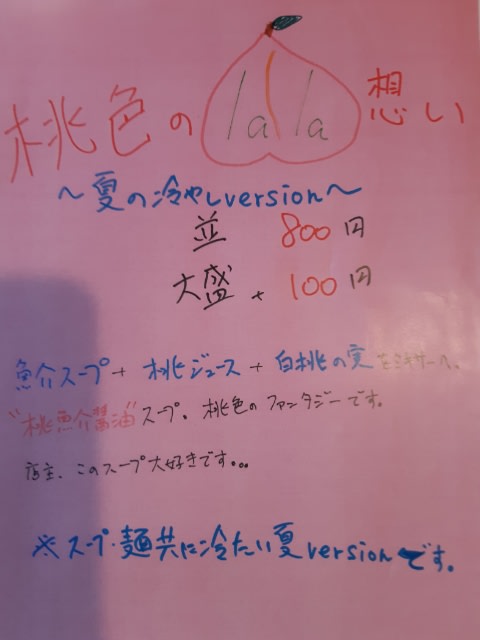 桃色の lala 想い
～夏の冷やしversion～
並 800円
大盛 + 100円
魚介スープ + 桃ジュース + 白桃の実をミキサーへ。
"桃魚介醤油"スープ。桃色のファンタジーです。
店主、このスープ大好きです...
※スープ・麺共に冷たい夏versionです。